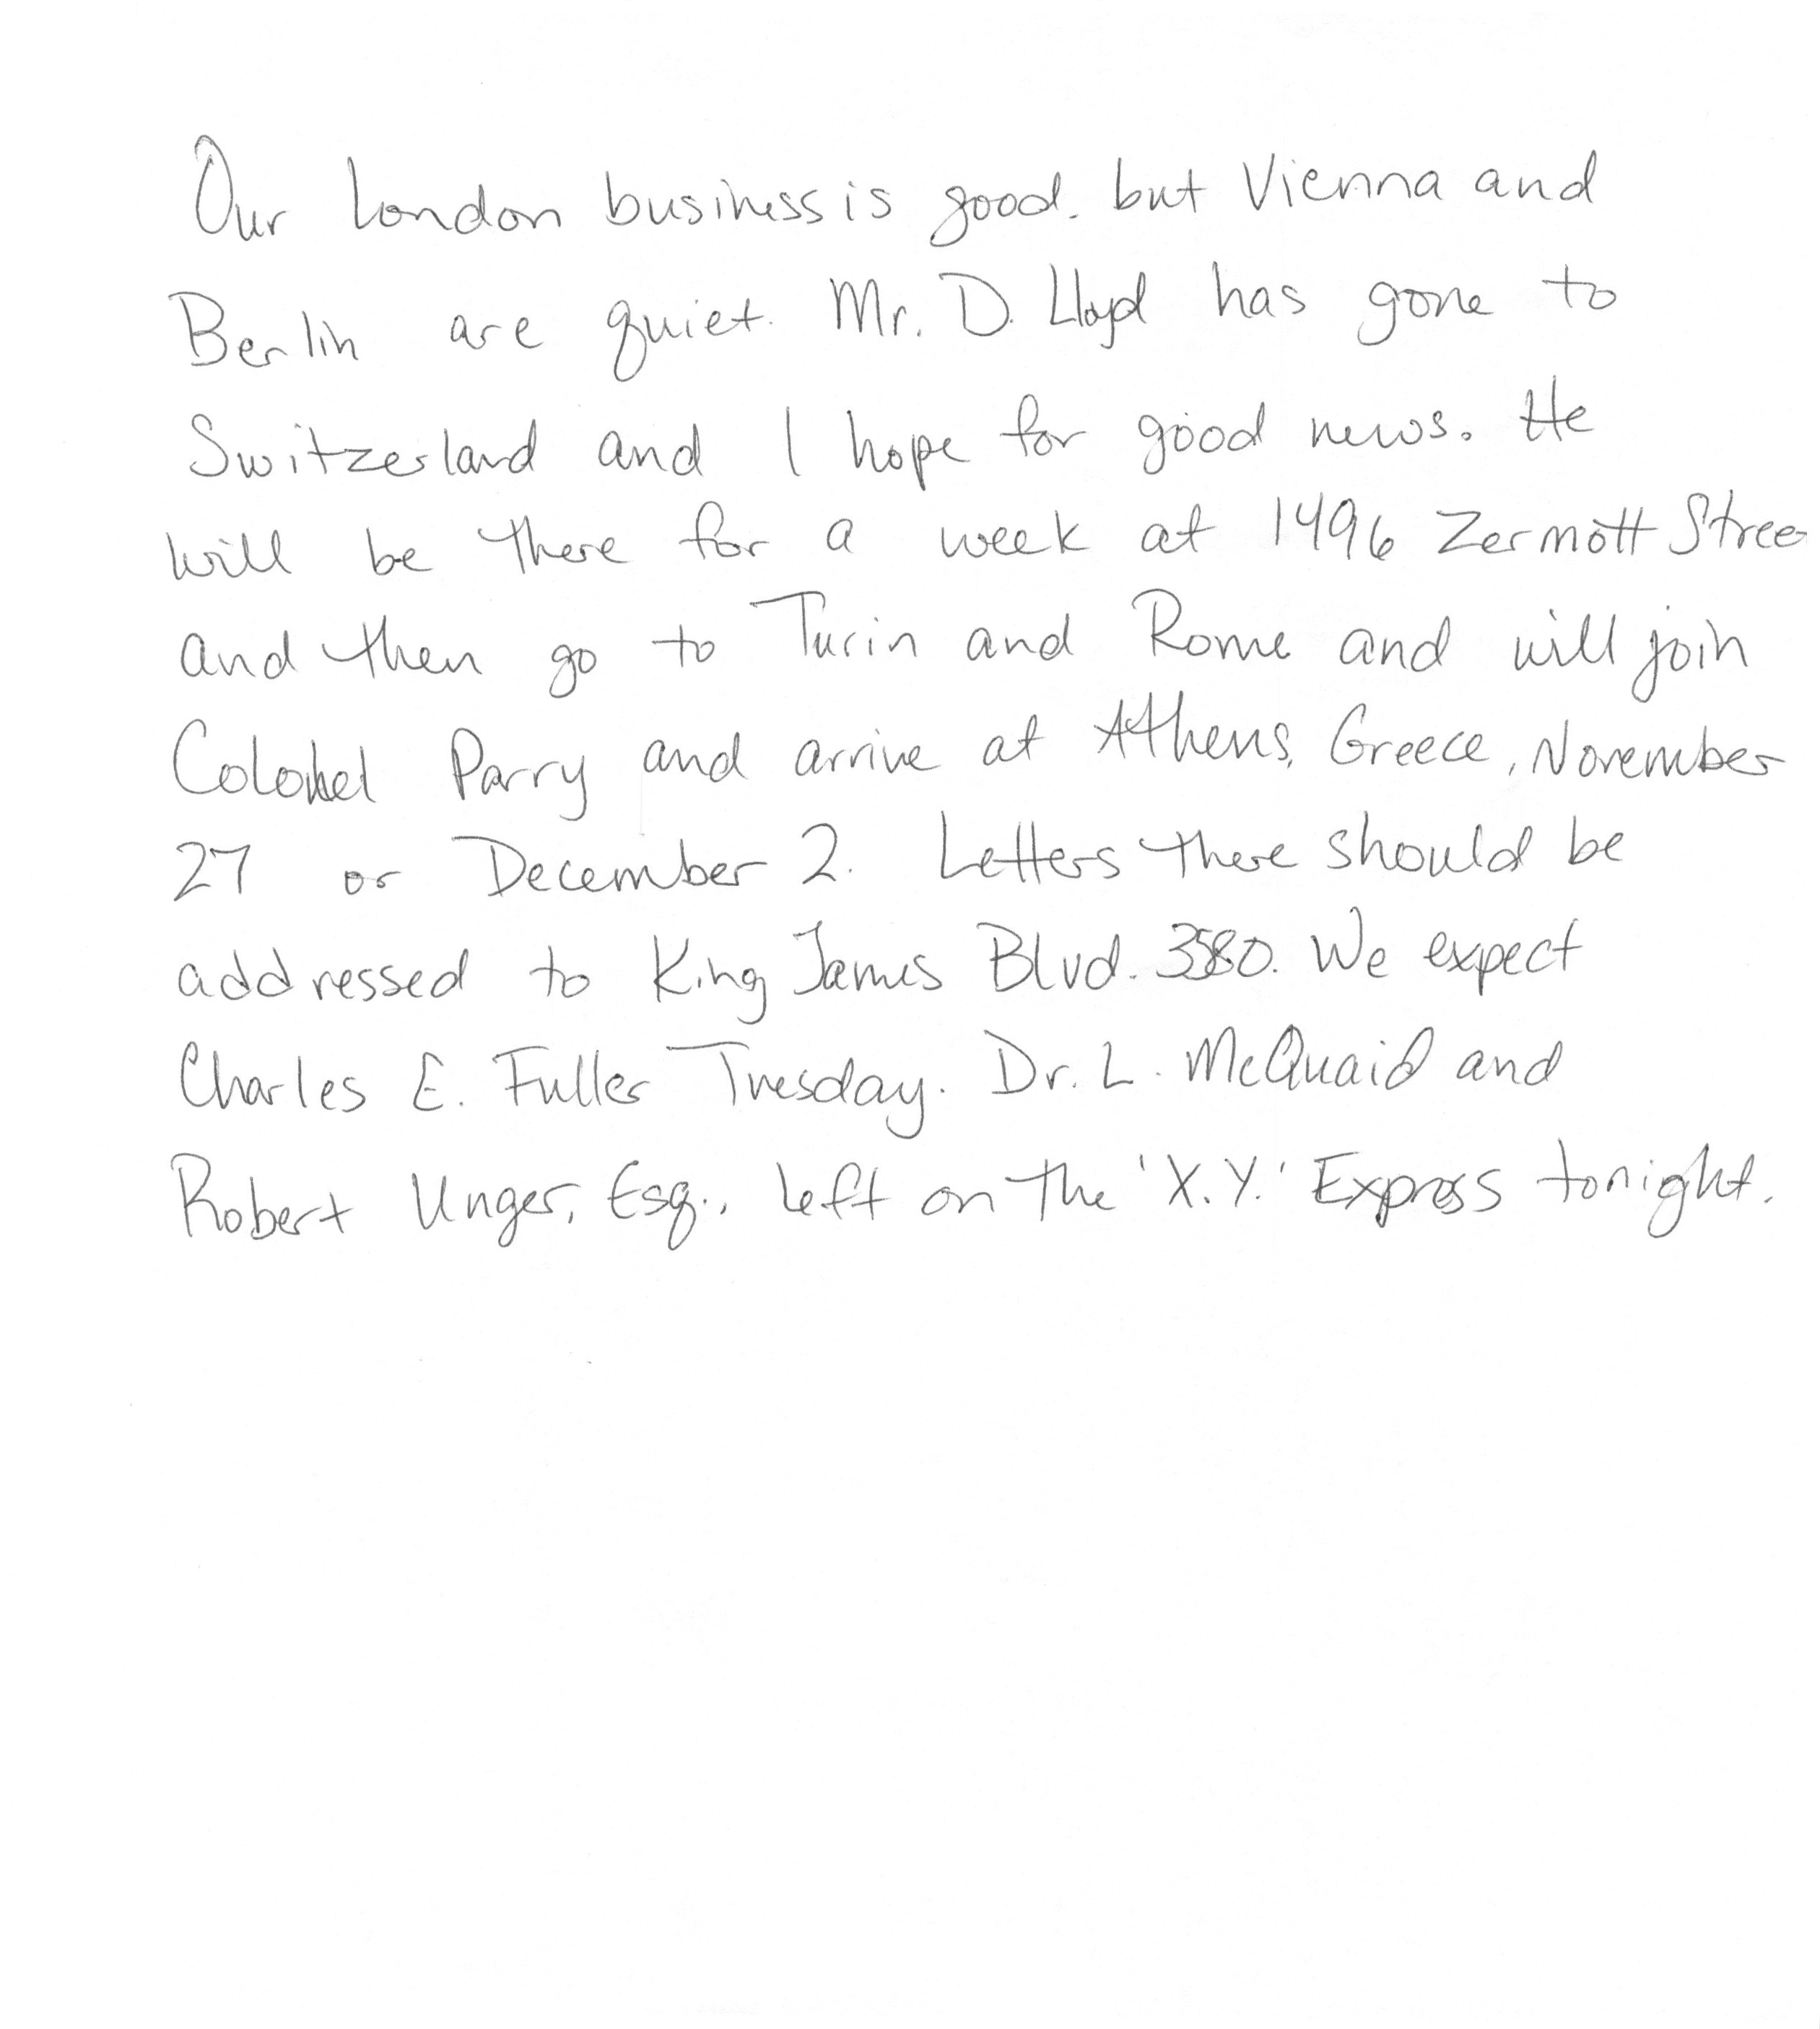 Our London business is good. but Vienna and
Berlin are quiet. Mr. D. Lloyd has gone to
Switzerland and I hope for good news. He
will be there for a week at 1496 Zermott Stree
and then go to Turin and Rome and will join
Colonel Parry and arrive at Athens, Greece, November
27 or December 2. Letters there should be
addressed to King James Blvd. 3580. We expect
Charles E. Fuller Tuesday. Dr. L. McQuaid and
Robert Unger, Esq., left on the 'X.Y.' Express tonight.